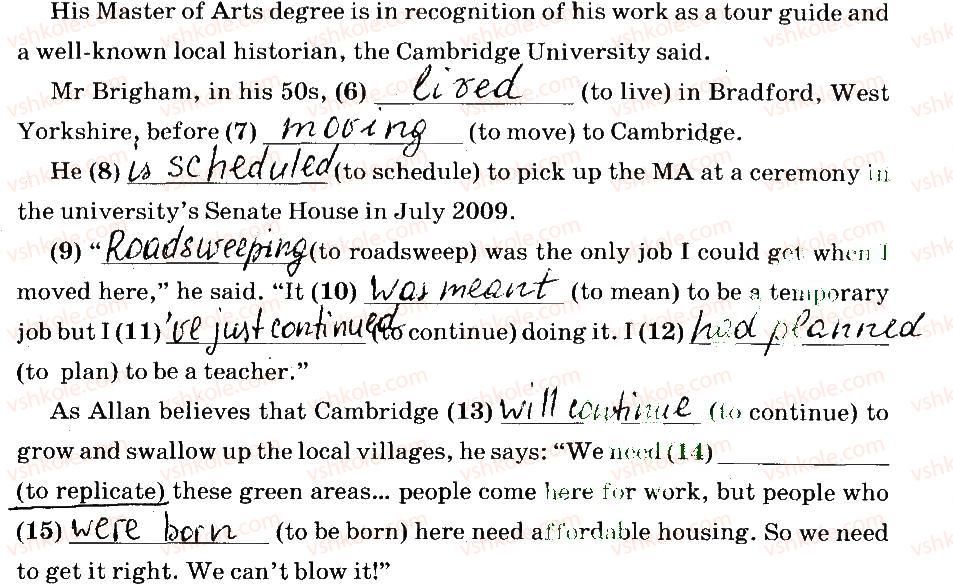 His Master of Arts degree is in recognition of his work as a tour guide and
a well-known local historian, the Cambridge University said.
Mr Brigham, in his 50s, (6) lived (to live) in Bradford, West
Yorkshire, before (7) moving (to move) to Cambridge.
He (8) is scheduled (to schedule) to pick up the MA at a ceremony in
the university's Senate House in July 2009.
(9) “Roadsweeping (to roadsweep) was the only job I could get when I
moved here,” he said. “It (10) was meant (to mean) to be a temporary
job but I (11) 've just continued (to continue) doing it. I (12) had planned
(to plan) to be a teacher.”
As Allan believes that Cambridge (13) will continue (to continue) to
grow and swallow up the local villages, he says: “We need (14) ____________
(to replicate) these green areas... people come here for work, but people who
(15) were born (to be born) here need affordable housing. So we need
to get it right. We can't blow it!”